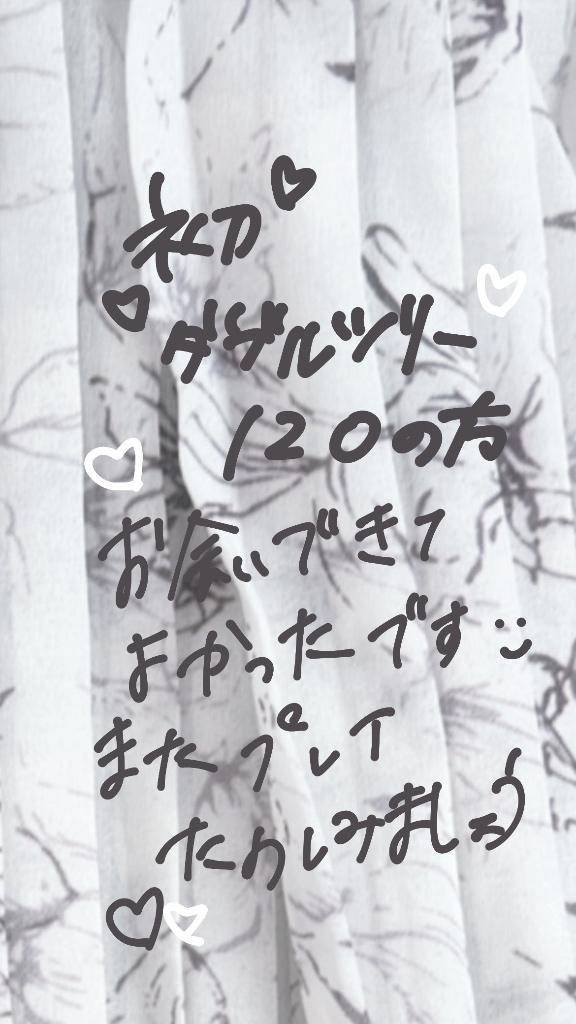 初
ダブルツリー
120の方
お会いできて
よかったです
またプレイ
たのしみましょう